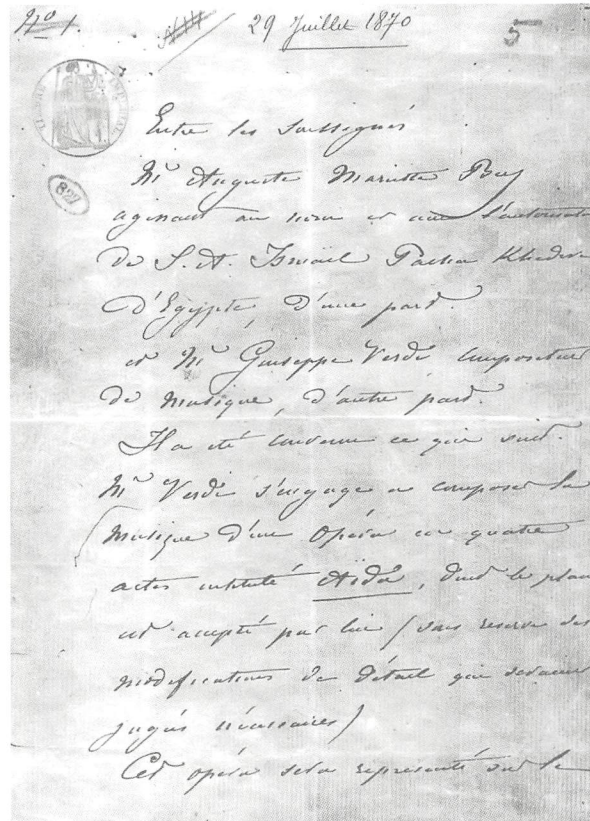 N° 1.
29 Juillet 1870
5
827
Entre les Soussignés
Mr Auguste Mariette Bey
agissant au nom et avec l'autorisat
de S. A. Ismaïl Pacha Khédive
d'Egypte, d'une part.
et Mr Giuseppe Verdi compositeur
de musique, d'autre part.
Il a été convenu ce qui suit.
Mr Verdi s'engage a composer la
musique d'un Opéra en quatre
actes intitulé Aïda, dont le plan
est accepté par lui (sous reserve des
modifications de détail qui seraient
jugés nécessaires)
Cet opéra sera représenté sur le